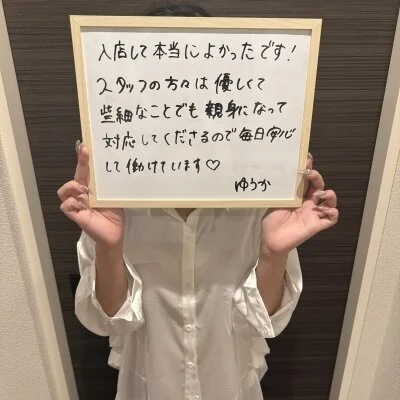 入店して本当によかったです!
スタッフの方々は優しくて
些細なことでも親身になって
対応してくださるので毎日安心
して働けています♡
ゆうか